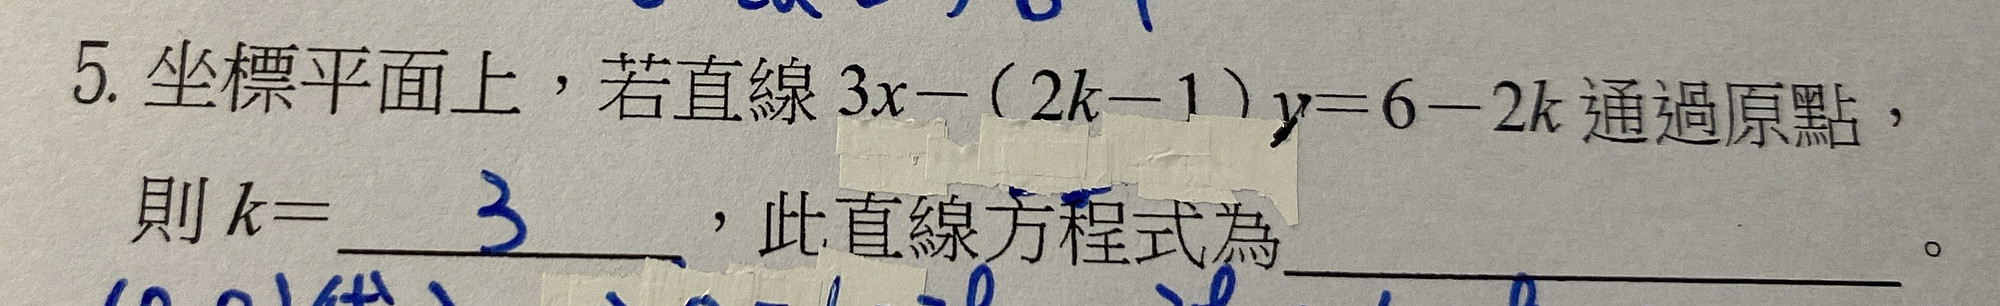 5. 坐標平面上，若直線 3x－(2k－1)y＝6－2k 通過原點，
則 k＝ 3 ，此直線方程式為＿＿＿＿。